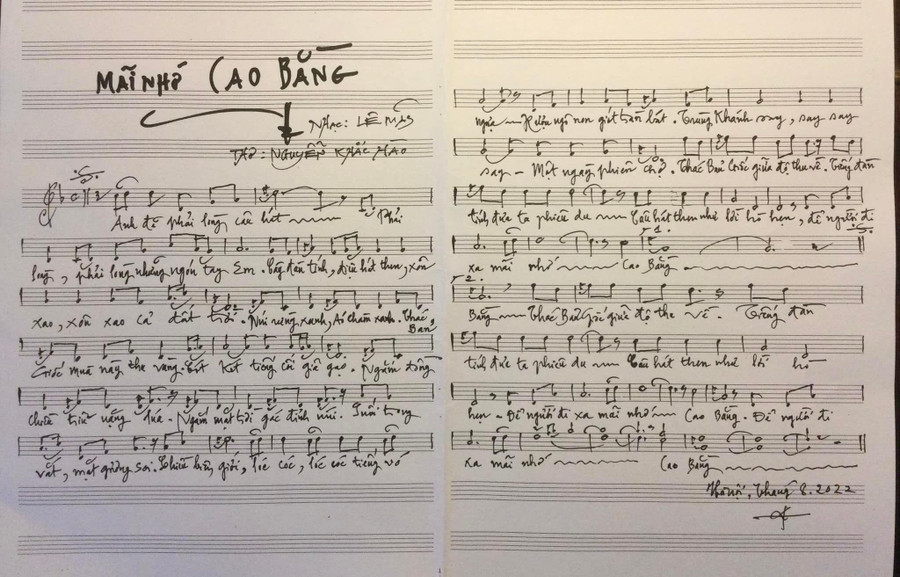 MÃI NHỚ CAO BẰNG
NHẠC: LÊ MÂY
THƠ: NGUYỄN KHẮC HÀO
Anh đã phải lòng câu hát Phải
lòng, phải lòng những ngón tay Em. Cây đàn tính, điệu hát then, xôn
xao, xôn xao cả đất trời. Núi rừng xanh, Áo chàm xanh. Thác Bản
Giốc mùa này thu vàng. Cút kít tiếng cối giã gạo. Ngắm dòng
chiều nắng. Ngắm mặt trời gác đỉnh núi. Suối trong
vắt, mặt gương soi. Chiều biên giới, lóc cóc, lóc cóc tiếng vó
ngựa Rượu ngô non giót tràn bát. Trùng Khánh say, say say
say - Một ngày phiên chợ. Thác Bản Giốc giữa độ thu về. Tiếng đàn
tính đưa ta phiêu du Câu hát then như lời hò hẹn, để người đi
xa mãi nhớ Cao Bằng
1.
2.
Bằng Thác Bản Giốc giữa độ thu về. Tiếng đàn
tính đưa ta phiêu du Câu hát then như lời hò
hẹn - Để người đi xa mãi nhớ Cao Bằng. Để người đi
xa mãi nhớ Cao Bằng
Hà Nội, tháng 8.2022